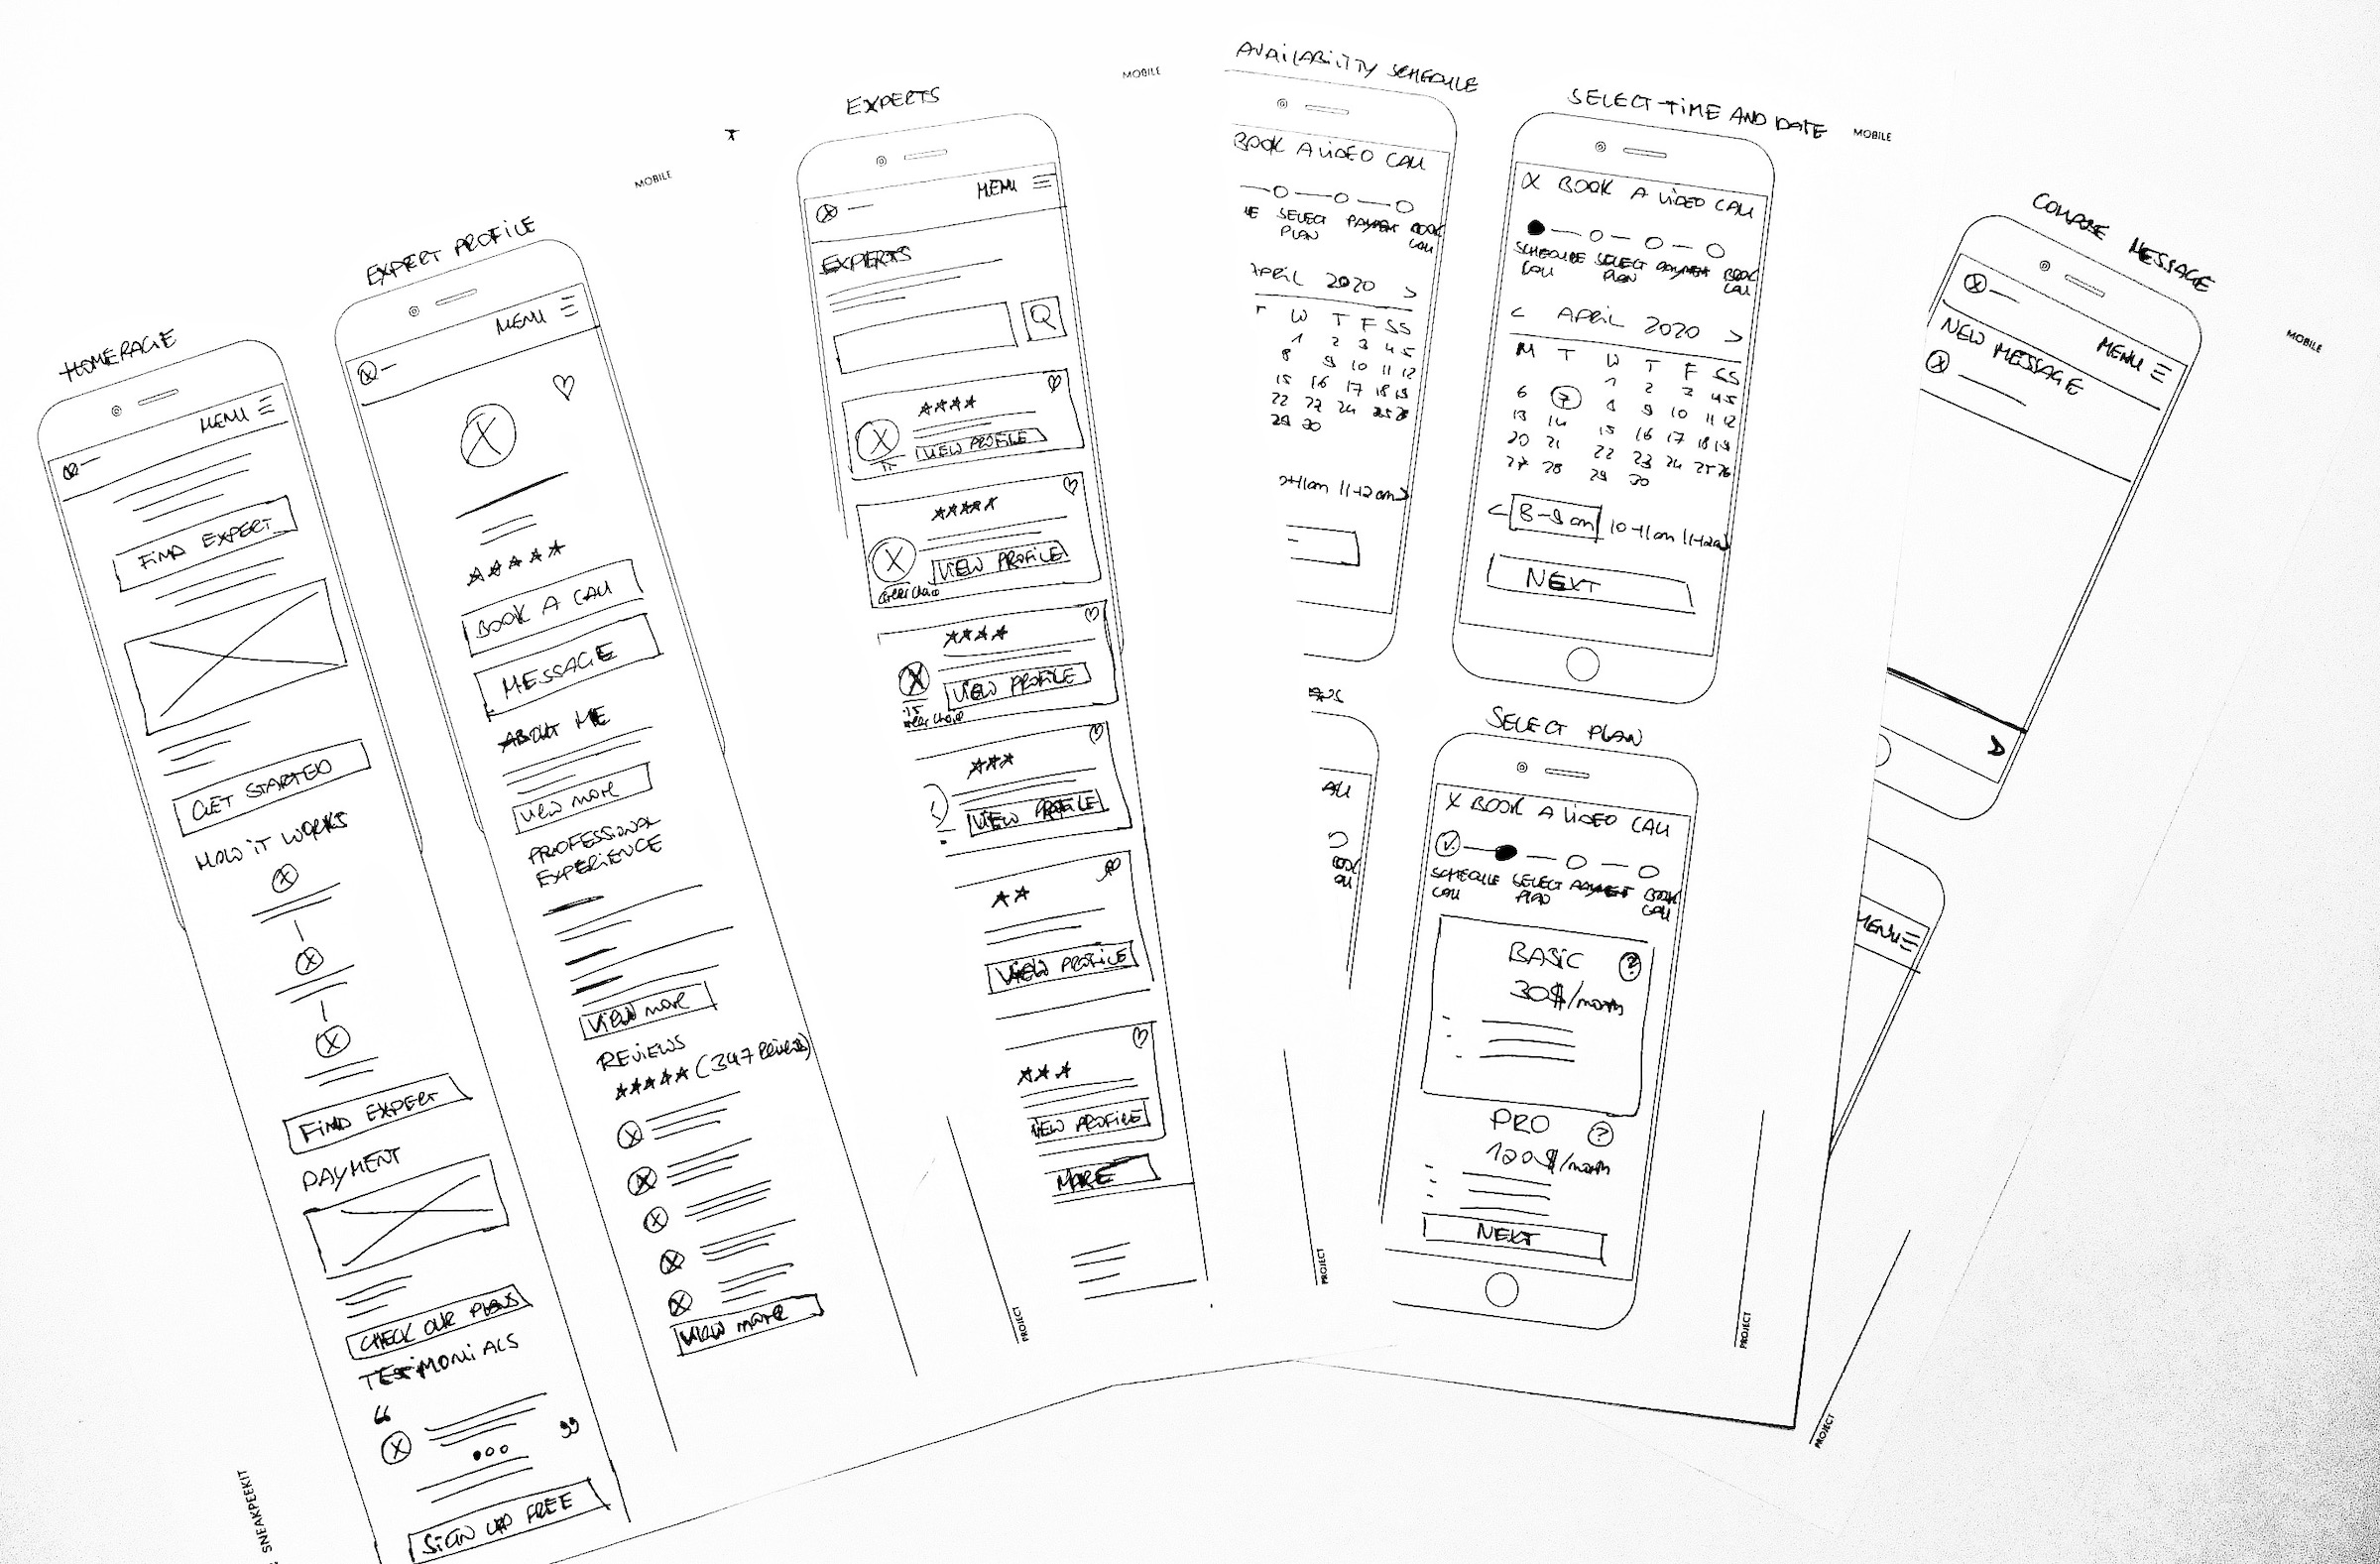 HOMEPAGE
MENU
FIND EXPERT
GET STARTED
HOW IT WORKS
FIND EXPERT
PAYMENT
CHECK OUR PLANS
TESTIMONIALS
“
”
SIGN UP FREE
SNEAKPEEKIT
MOBILE
EXPERT PROFILE
MENU
BOOK A CALL
MESSAGE
ABOUT ME
VIEW MORE
PROFESSIONAL
EXPERIENCE
VIEW MORE
REVIEWS
(347 REVIEWS)
VIEW MORE
PROJECT
MOBILE
EXPERTS
MENU
EXPERTS
VIEW PROFILE
VIEW PROFILE
VIEW PROFILE
VIEW PROFILE
VIEW PROFILE
VIEW PROFILE
MORE
PROJECT
AVAILABILITY SCHEDULE
BOOK A VIDEO CALL
SELECT PAYMENT BOOK
PLAN CALL
APRIL 2020 >
T W T F S S
1 2 3 4 5
8 9 10 11 12
15 16 17 18 19
22 23 24 25 26
29 30
11-12am>
MOBILE
SELECT TIME AND DATE
X BOOK A VIDEO CALL
SCHEDULE SELECT PAYMENT BOOK
CALL PLAN CALL
< APRIL 2020 >
M T W T F S S
1 2 3 4 5
6 7 8 9 10 11 12
13 14 15 16 17 18 19
20 21 22 23 24 25 26
27 28 29 30
< 8-9am 10-11am
NEXT
SELECT PLAN
X BOOK A VIDEO CALL
SCHEDULE SELECT PAYMENT BOOK
CALL PLAN CALL
BASIC ?
30$/month
PRO ?
120$/month
NEXT
PROJECT
MOBILE
COMPOSE MESSAGE
MENU
NEW MESSAGE
MENU
PROJECT